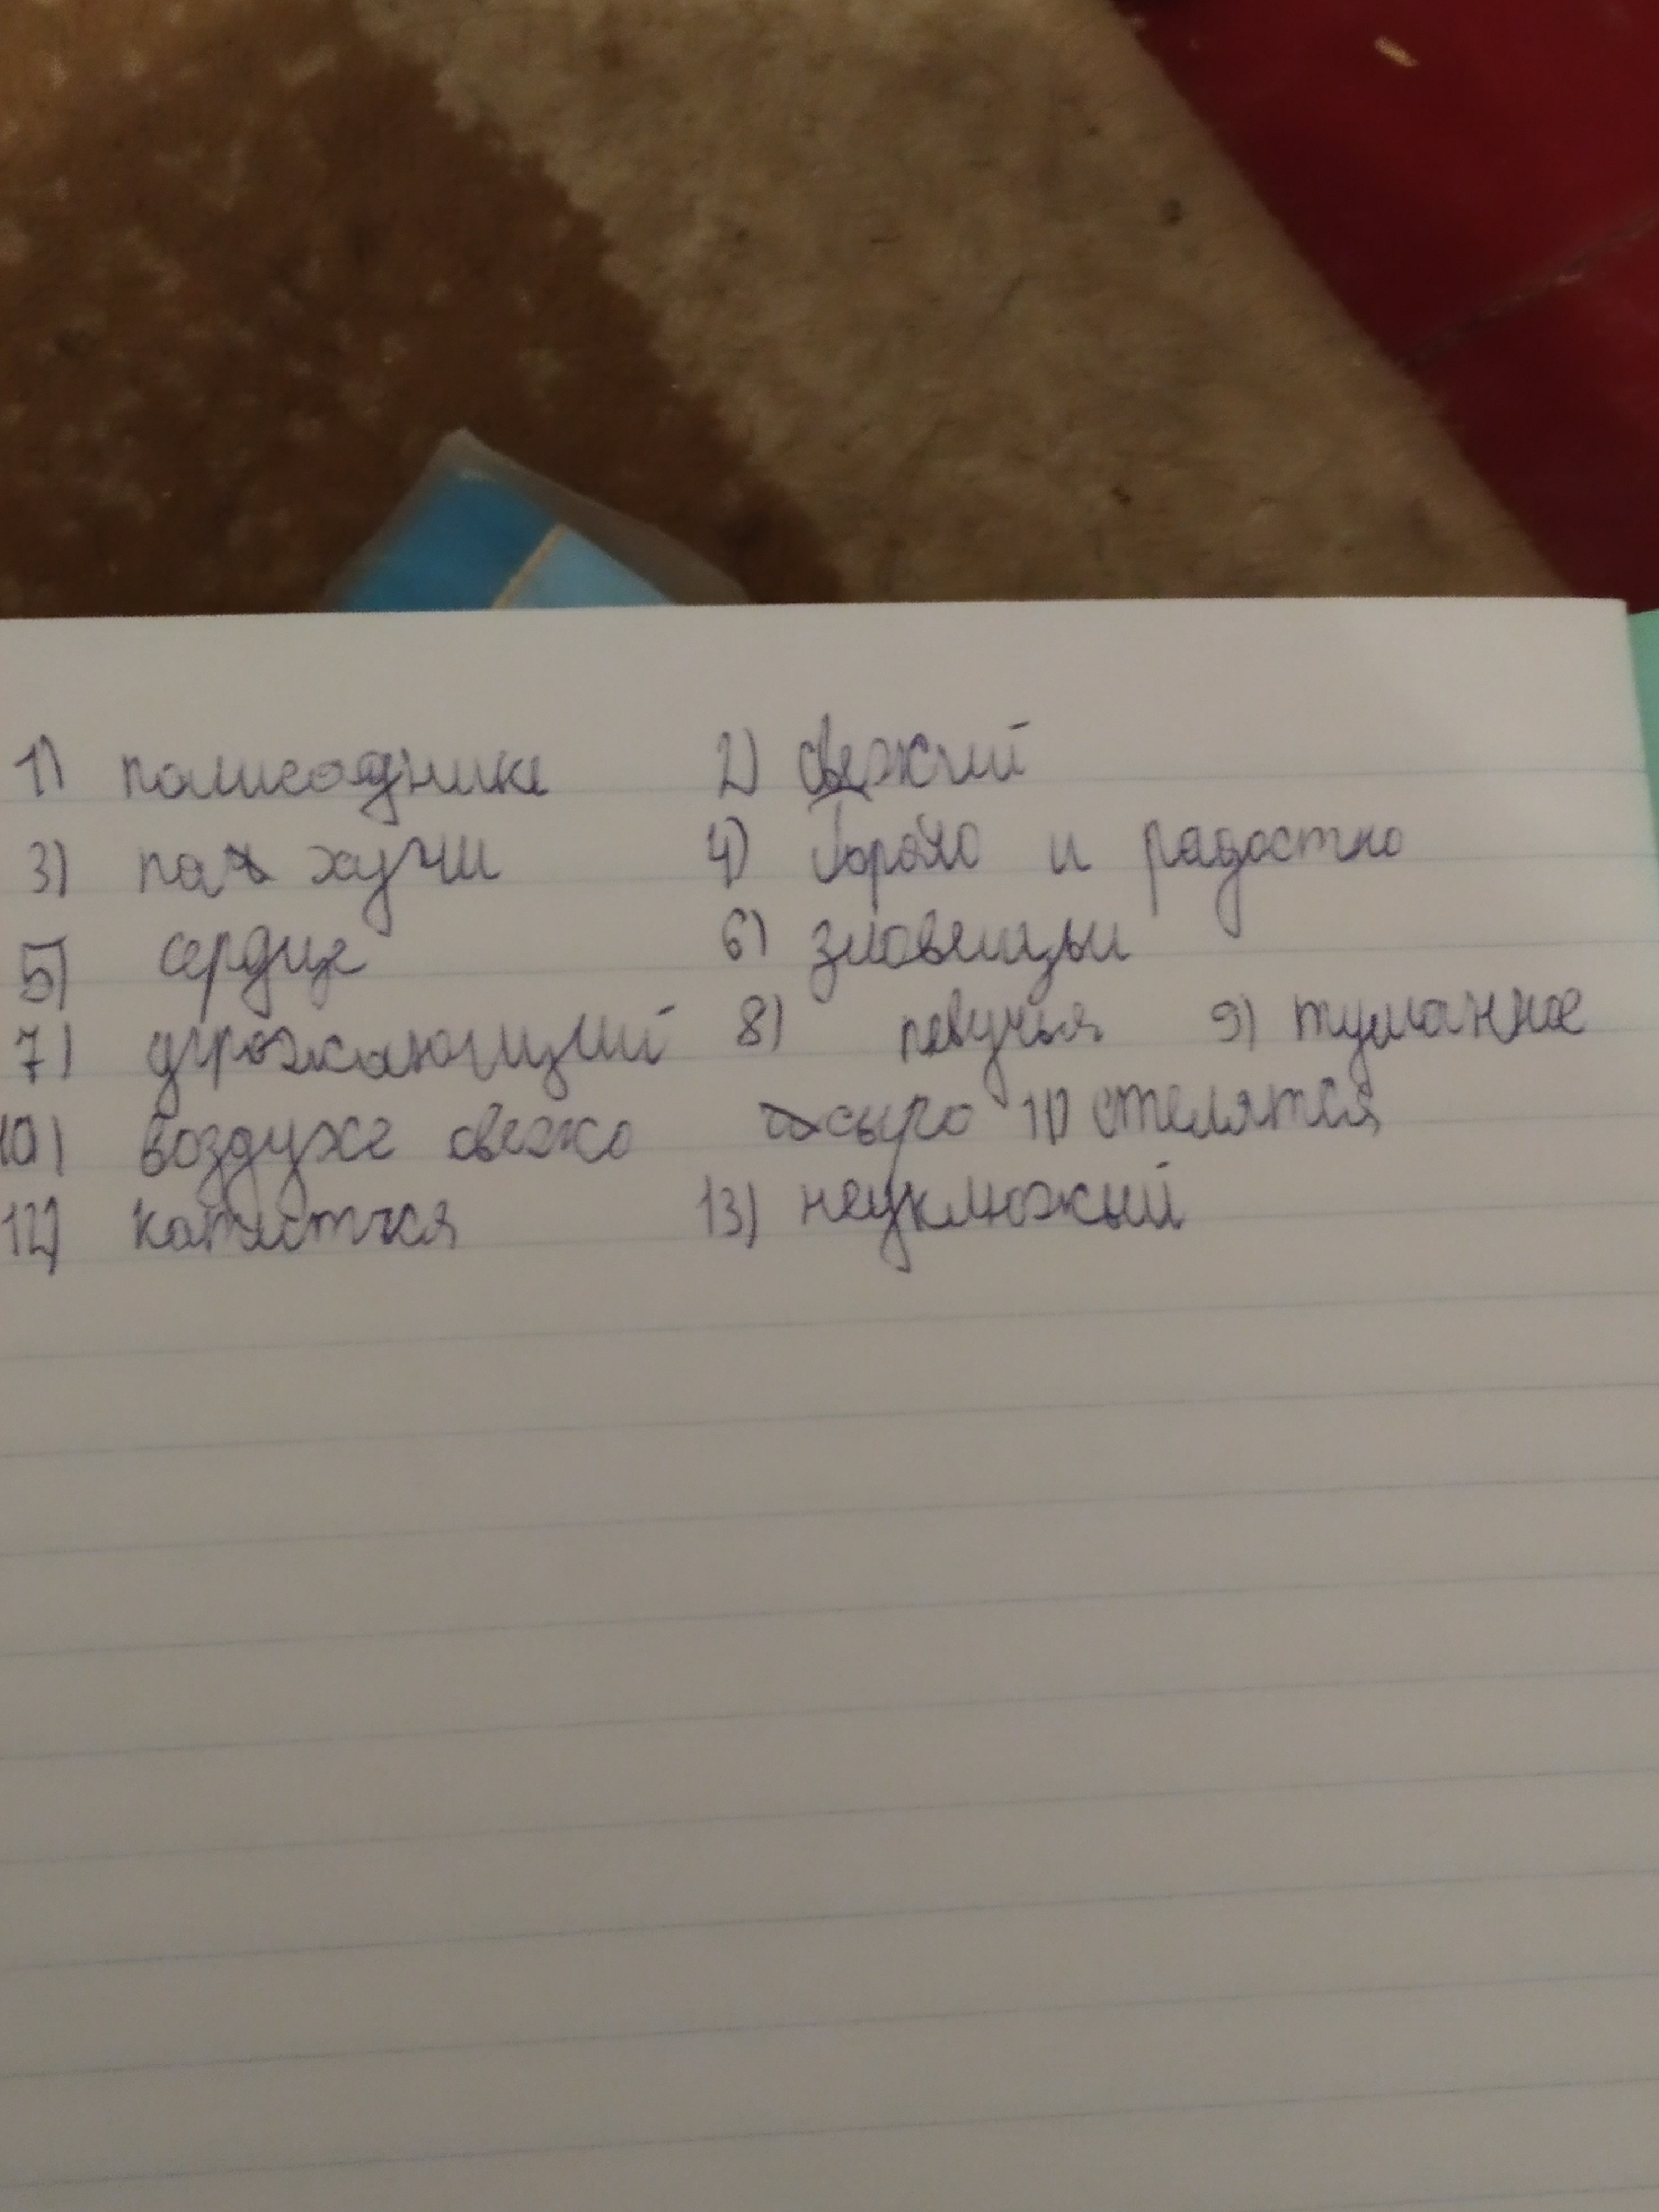 1) полисаднике 2) свежий
3) пах хучи 4) бороло и радостно
5) сердце 6) зловещьи
7) угрожающий 8) певучья 9) туманное
10) воздухе свежо сыро 11) стелятся
12) катиться 13) неуклюжый